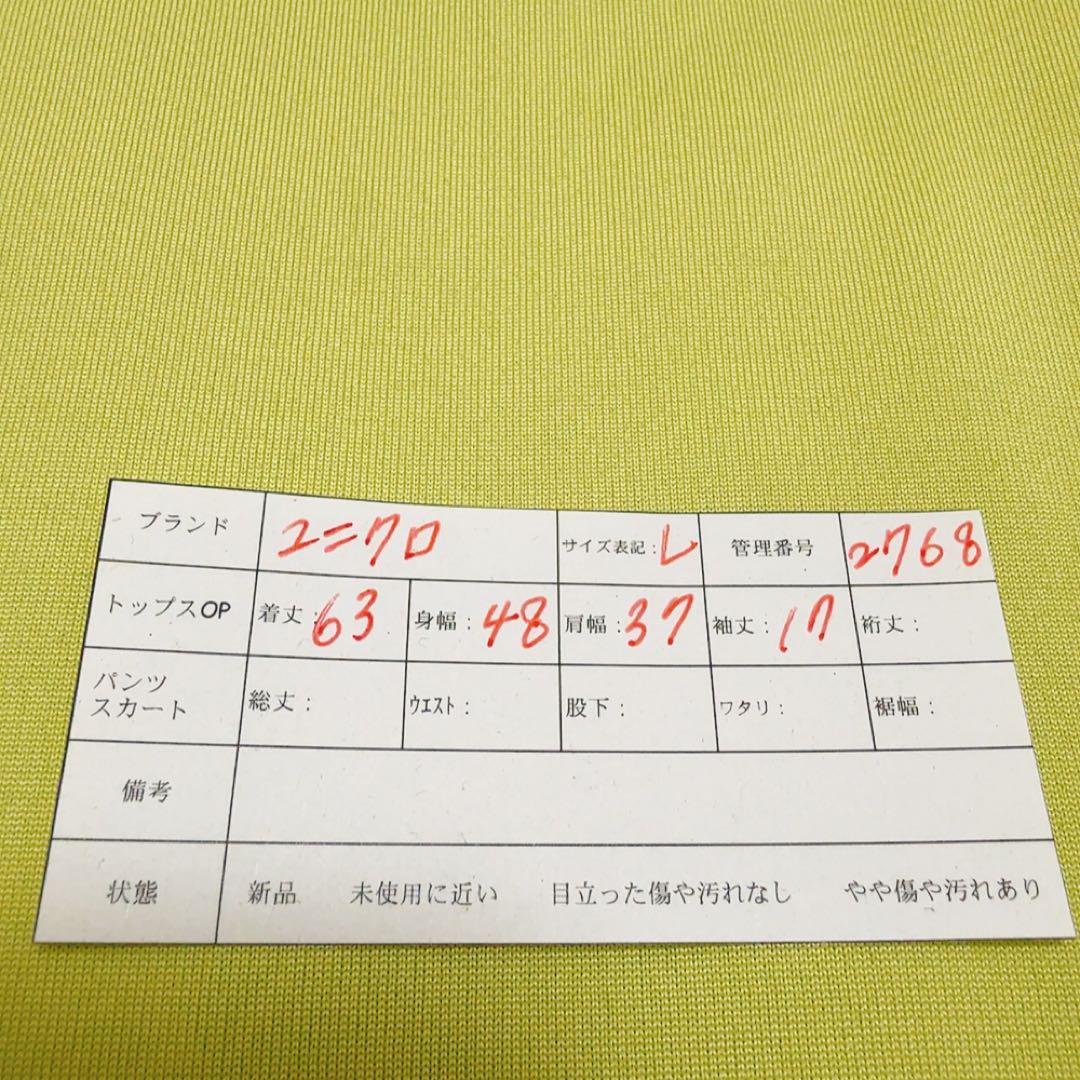 ブランド ユニクロ サイズ表記：L 管理番号 2768
トップスOP 着丈：63 身幅：48 肩幅：37 袖丈：17 裄丈：
パンツ
スカート 総丈： ウエスト： 股下： ワタリ： 裾幅：
備考
状態 新品 未使用に近い 目立った傷や汚れなし やや傷や汚れあり